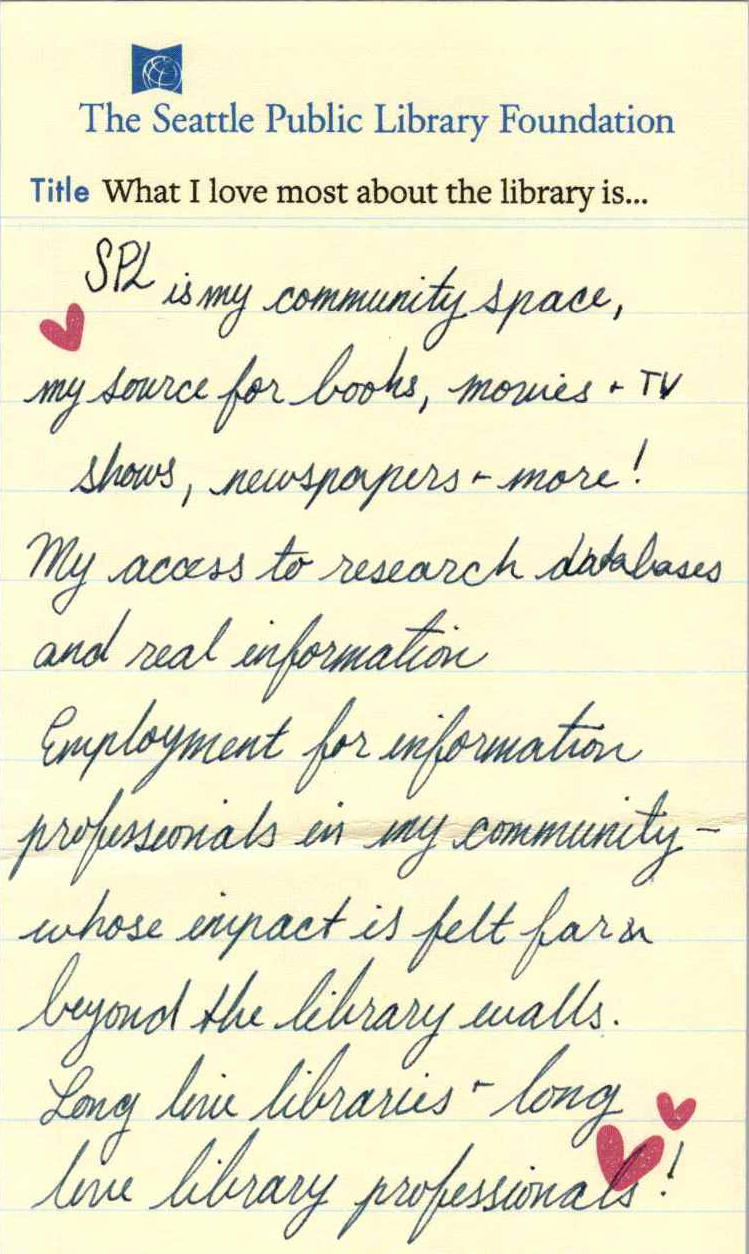 The Seattle Public Library Foundation
Title What I love most about the library is...
SPL is my community space,
my source for books, movies + TV
shows, newspapers + more!
My access to research databases
and real information
Employment for information
professionals in my community –
whose impact is felt far
beyond the library walls.
Long live libraries + long
live library professionals!